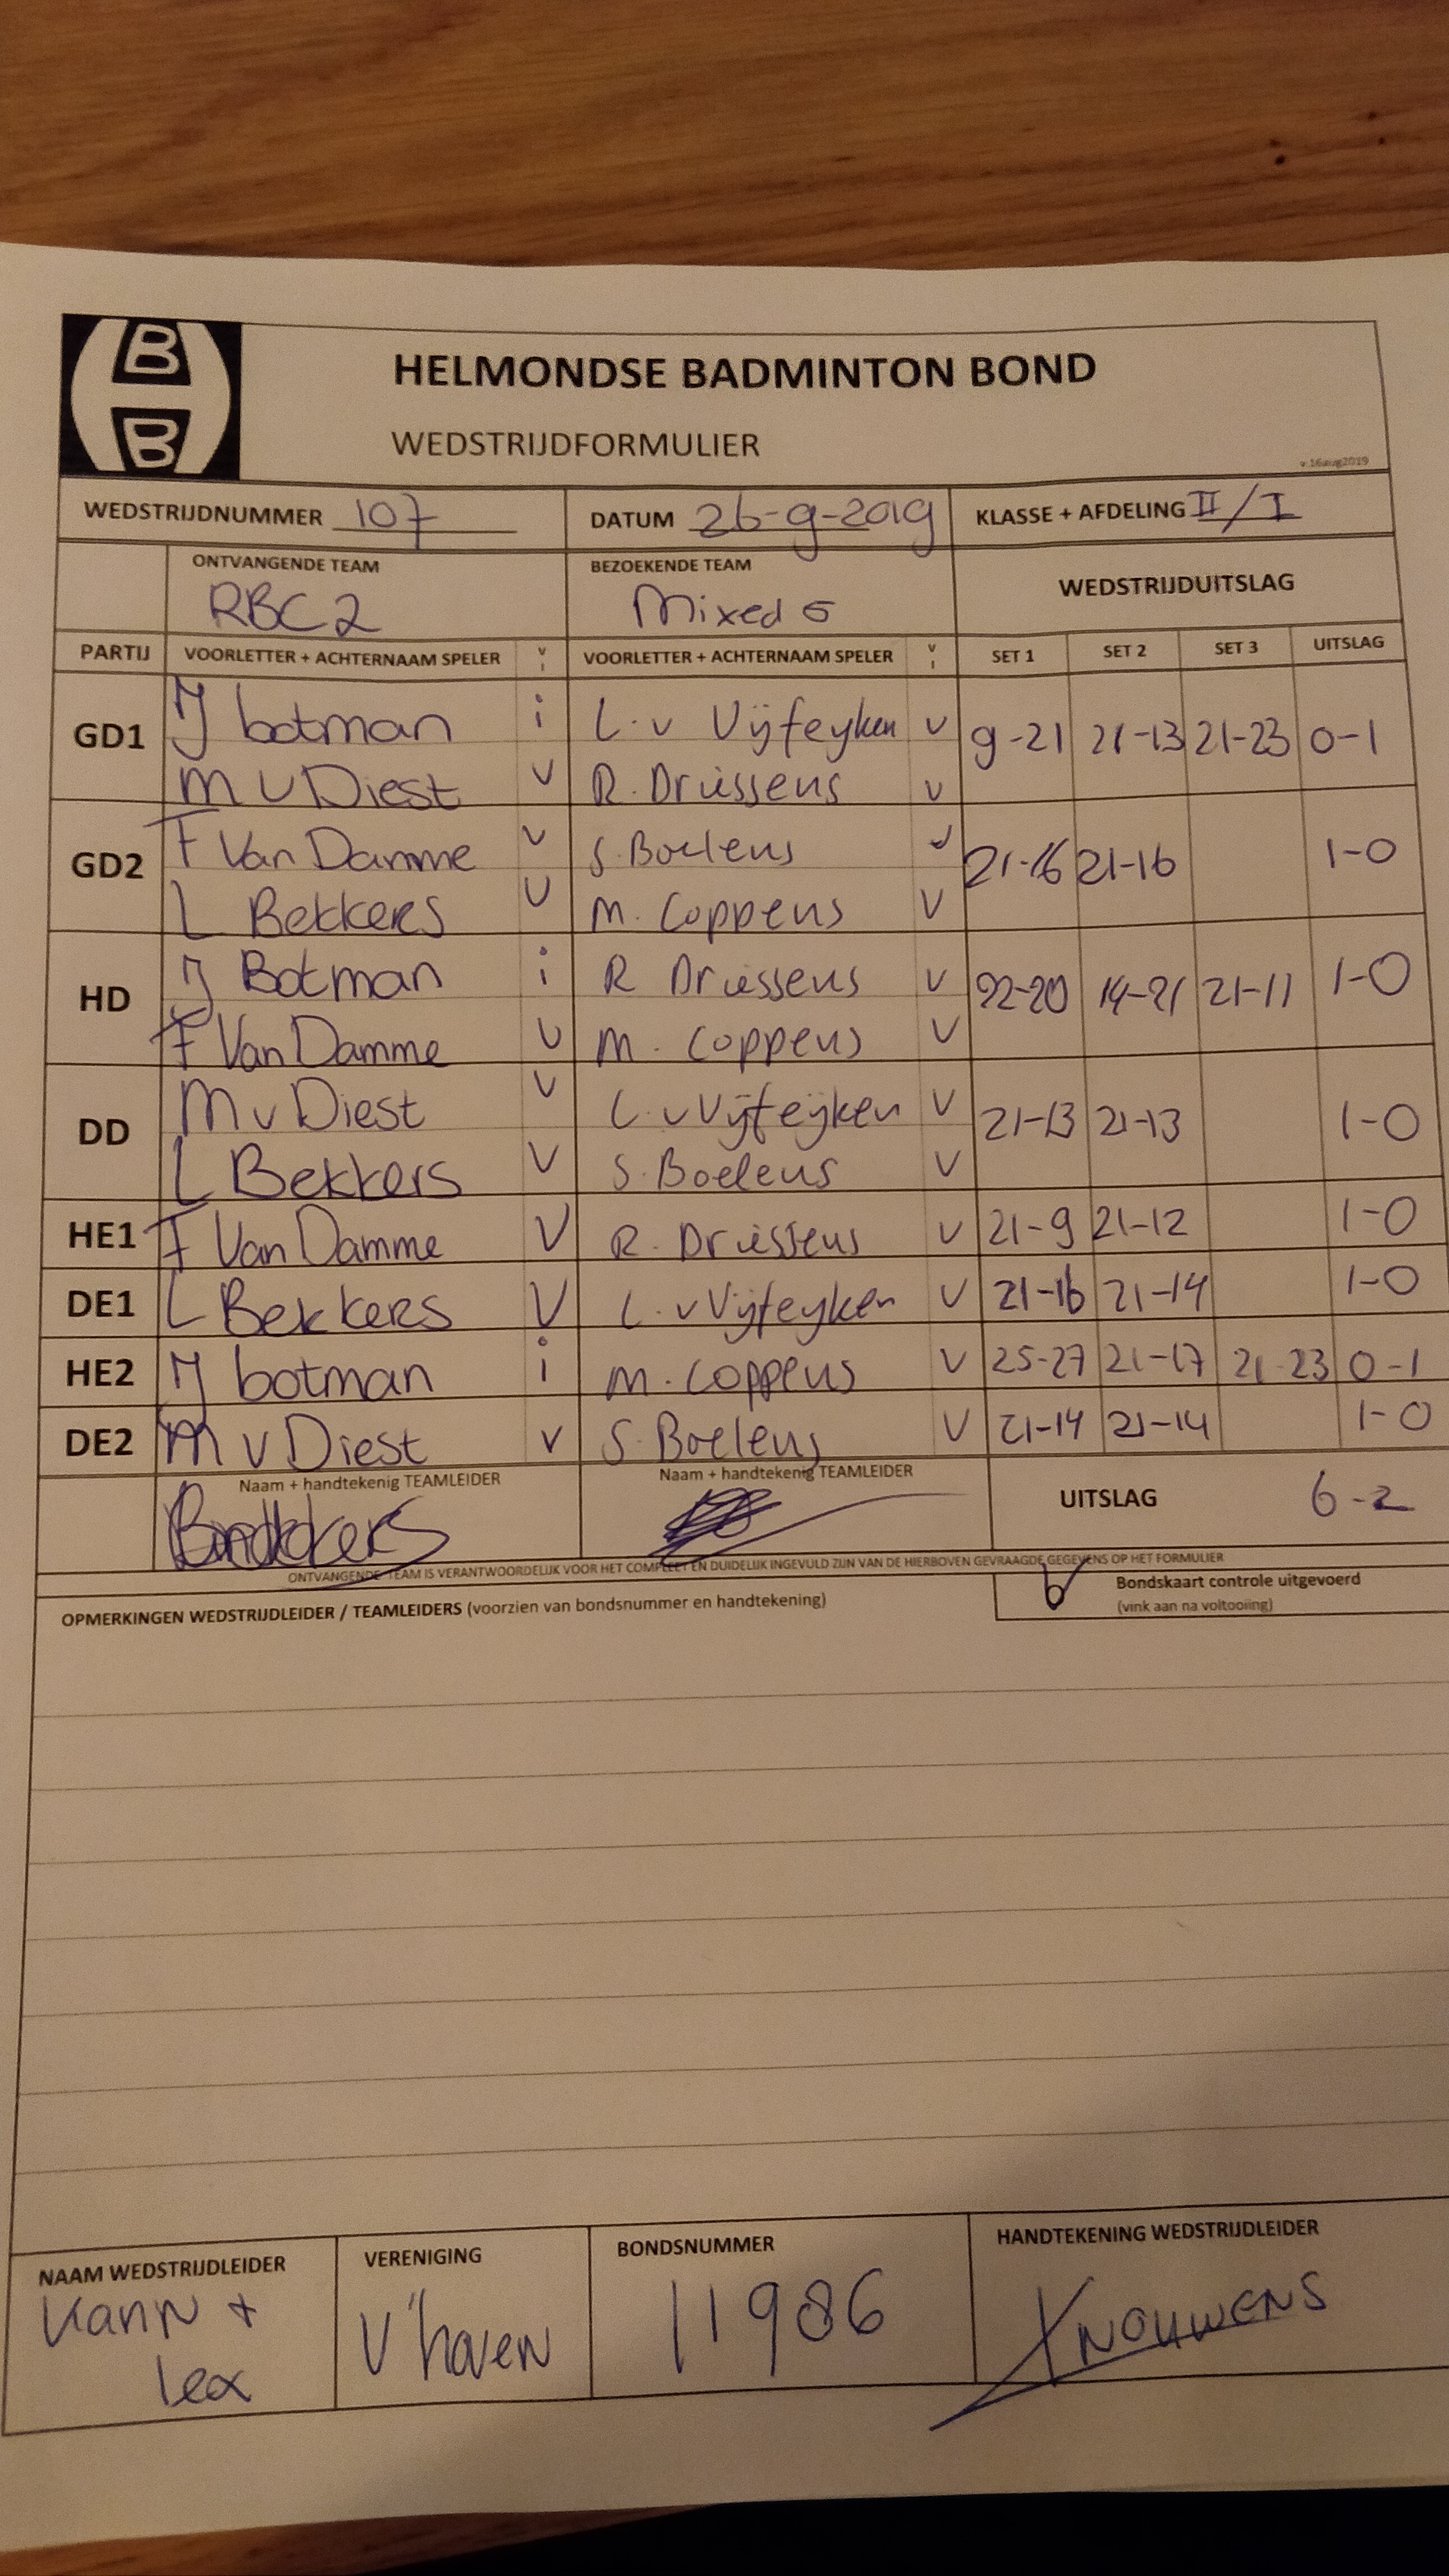 HELMONDSE BADMINTON BOND
WEDSTRIJDFORMULIER
v.16aug2019
WEDSTRIJDNUMMER 107 DATUM 26-9-2019 KLASSE + AFDELING II/I
ONTVANGENDE TEAM BEZOEKENDE TEAM WEDSTRIJDUITSLAG
RBC2 Mixed 5
PARTIJ VOORLETTER + ACHTERNAAM SPELER V I VOORLETTER + ACHTERNAAM SPELER V I SET 1 SET 2 SET 3 UITSLAG
GD1 J botman i L. v Vijfeyken v 9-21 21-13 21-23 0-1
M v Diest v R. Driessens v
GD2 F Van Damme v S. Boelens v 21-16 21-16 1-0
L Bekkers v M. Coppens v
HD J Botman i R Driessens v 22-20 19-21 21-11 1-0
F Van Damme v M. Coppens v
DD M v Diest v L. v Vijfeijken v 21-13 21-13 1-0
L Bekkers v S. Boelens v
HE1 F Van Damme v R. Driessens v 21-9 21-12 1-0
DE1 L Bekkers v L. v Vijfeyken v 21-16 21-14 1-0
HE2 J botman i M. Coppens v 25-27 21-17 21-23 0-1
DE2 M v Diest v S. Boelens v 21-14 21-14 1-0
Naam + handtekenig TEAMLEIDER Naam + handtekenig TEAMLEIDER UITSLAG 6-2
ONTVANGENDE TEAM IS VERANTWOORDELIJK VOOR HET COMPLEET EN DUIDELIJK INGEVULD ZIJN VAN DE HIERBOVEN GEVRAAGDE GEGEVENS OP HET FORMULIER
OPMERKINGEN WEDSTRIJDLEIDER / TEAMLEIDERS (voorzien van bondsnummer en handtekening) Bondskaart controle uitgevoerd
(vink aan na voltooiing)
NAAM WEDSTRIJDLEIDER VERENIGING BONDSNUMMER HANDTEKENING WEDSTRIJDLEIDER
Karin + V'hoven 11986 Nouwens
lex